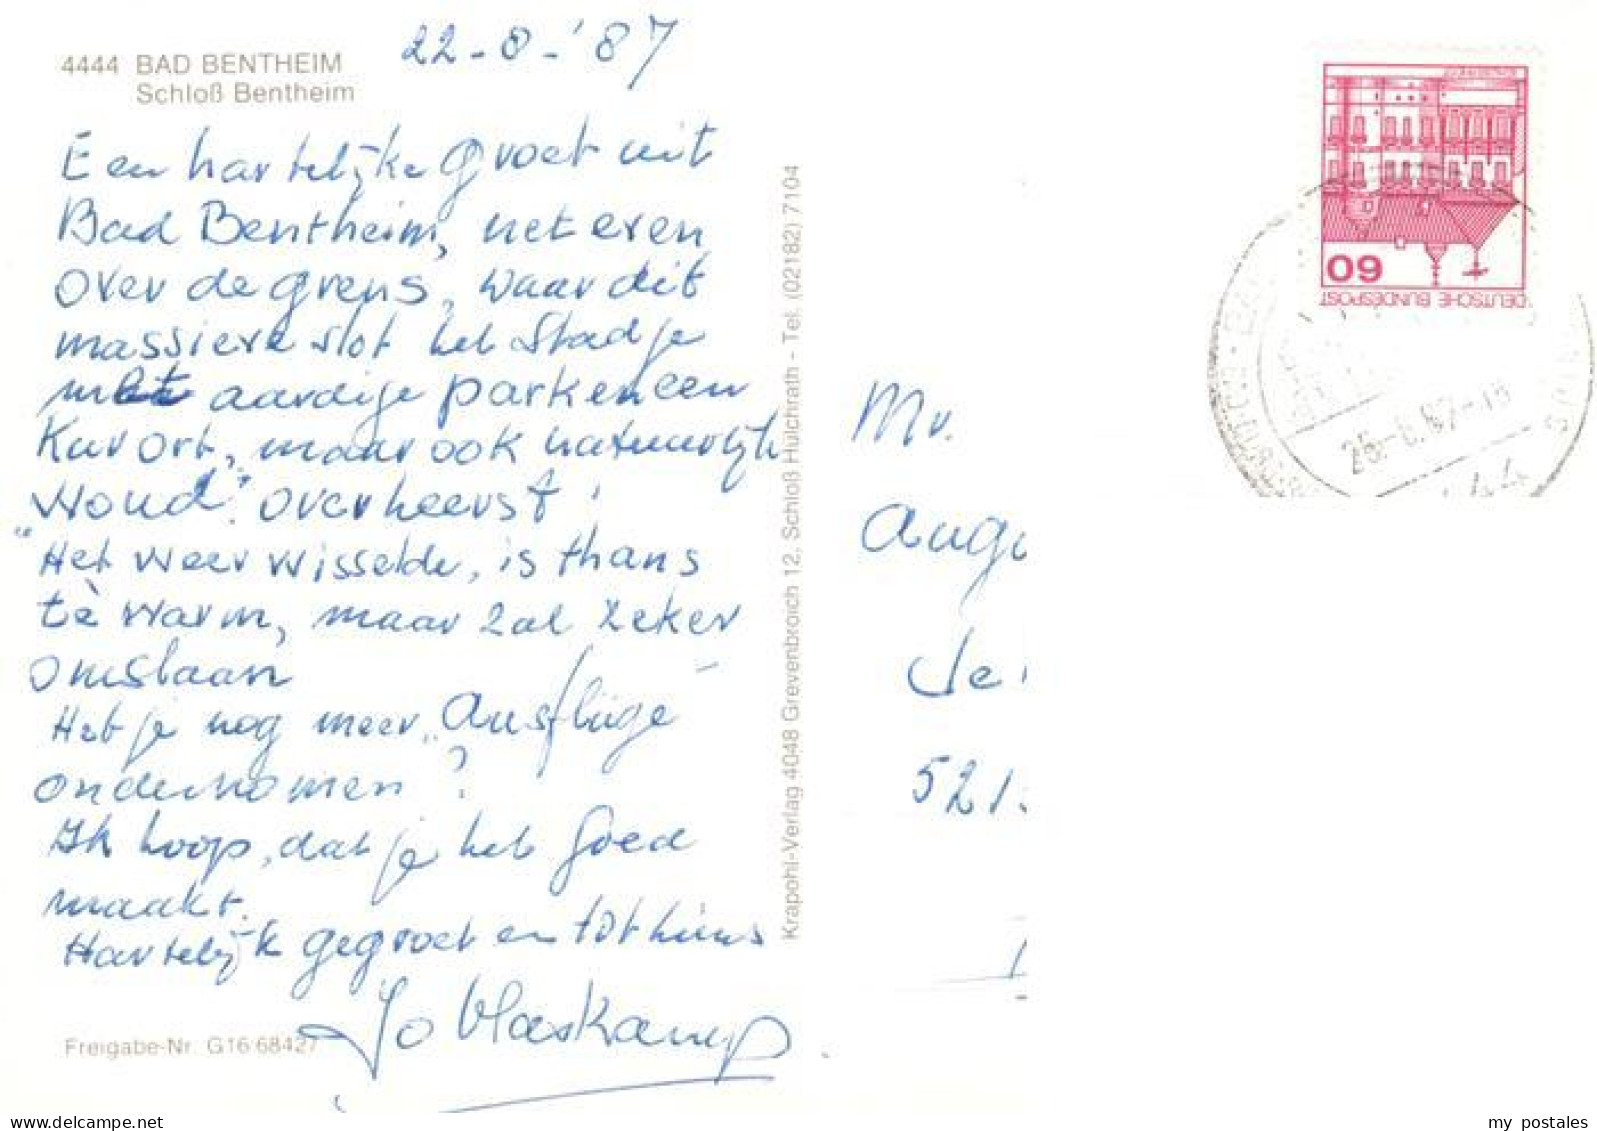 22-8-'87
4444 BAD BENTHEIM
Schloß Bentheim
Een hartelijke groet uit
Bad Bentheim, net even
over de grens, waar dit
massieve slot het stadje
met aardige park en een
Kurort, maar ook natuurlijk
"Woud" overheerst!
Het weer wisselde, is thans
tè warm, maar zal zeker
omslaan
Heb je nog meer „Ausflüge"
ondernomen?
Ik hoop, dat je het goed
maakt.
Hartelijk gegroet en tot kijns
Jo Vlaskamp
Freigabe-Nr. G16 68427
Krapohl-Verlag 4048 Grevenbroich 12, Schloß Hülchrath - Tel. (02182) 7104
Mr.
Augu
521
DEUTSCHE BUNDESPOST
60
44
my postales